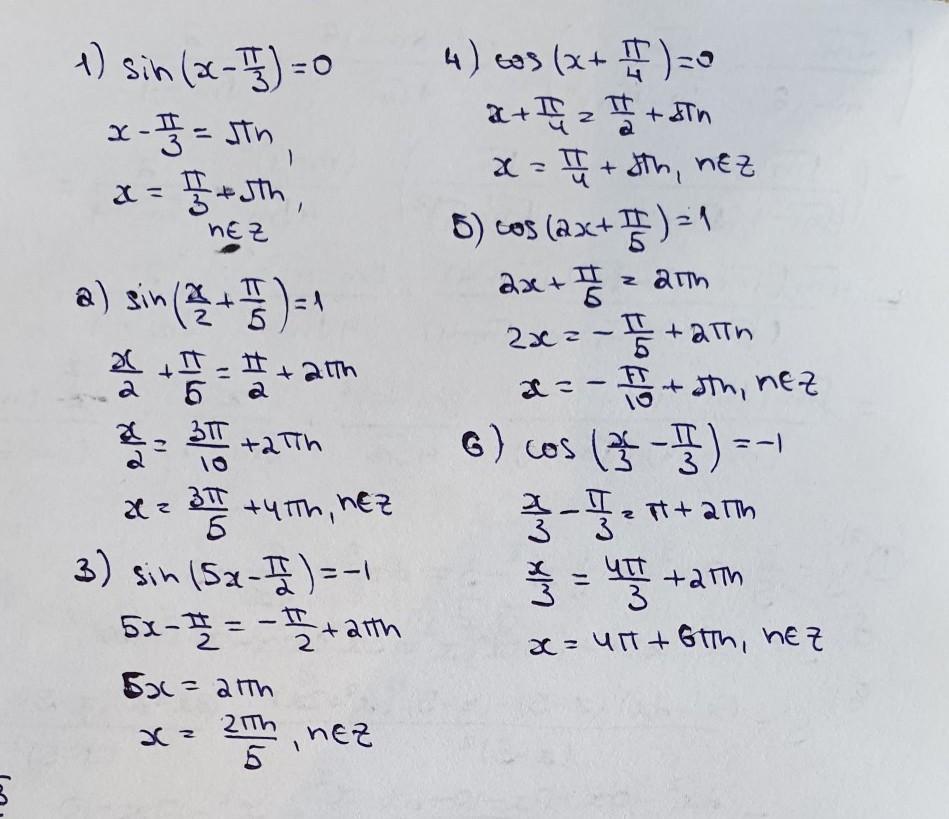 1) sin(x-π/3)=0
x-π/3=πn,
x=π/3+πn,
n∈Z
2) sin(x/2+π/5)=1
x/2+π/5=π/2+2πn
x/2=3π/10+2πn
x=3π/5+4πn, n∈Z
3) sin(5x-π/2)=-1
5x-π/2=-π/2+2πn
5x=2πn
x=2πn/5, n∈Z
4) cos(x+π/4)=0
x+π/4=π/2+πn
x=π/4+πn, n∈Z
5) cos(2x+π/5)=1
2x+π/5=2πn
2x=-π/5+2πn
x=-π/10+πn, n∈Z
6) cos(x/3-π/3)=-1
x/3-π/3=π+2πn
x/3=4π/3+2πn
x=4π+6πn, n∈Z